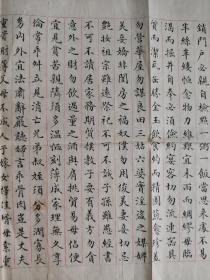 鎖門戶必親自檢點一粥一飯當思來處不易
半絲半縷恆念物力維艱宜未雨而綢繆毋臨
渴而掘井自奉必須儉約宴客切勿流連器具
質而潔瓦缶勝金玉飲食約而精園蔬愈珍羞
勿營華屋勿謀良田三姑六婆實淫盜之媒婢
美妾嬌非閨房之福奴僕勿用俊美妻妾切忌
艷粧祖宗雖遠祭祀不可不誠子孫雖愚經書
不可不讀居家務期質樸教子要有義方勿貪
意外之財勿飲過量之酒與肩挑貿易毋佔便
宜見貧苦親鄰須多溫恤刻薄成家理無久享
倫常乖舛立見消亡兄弟叔姪須分多潤寡長
幼內外宜法肅辭嚴聽婦言乖骨肉豈是丈夫
重資財薄父母不成人子嫁女擇佳婿毋索重